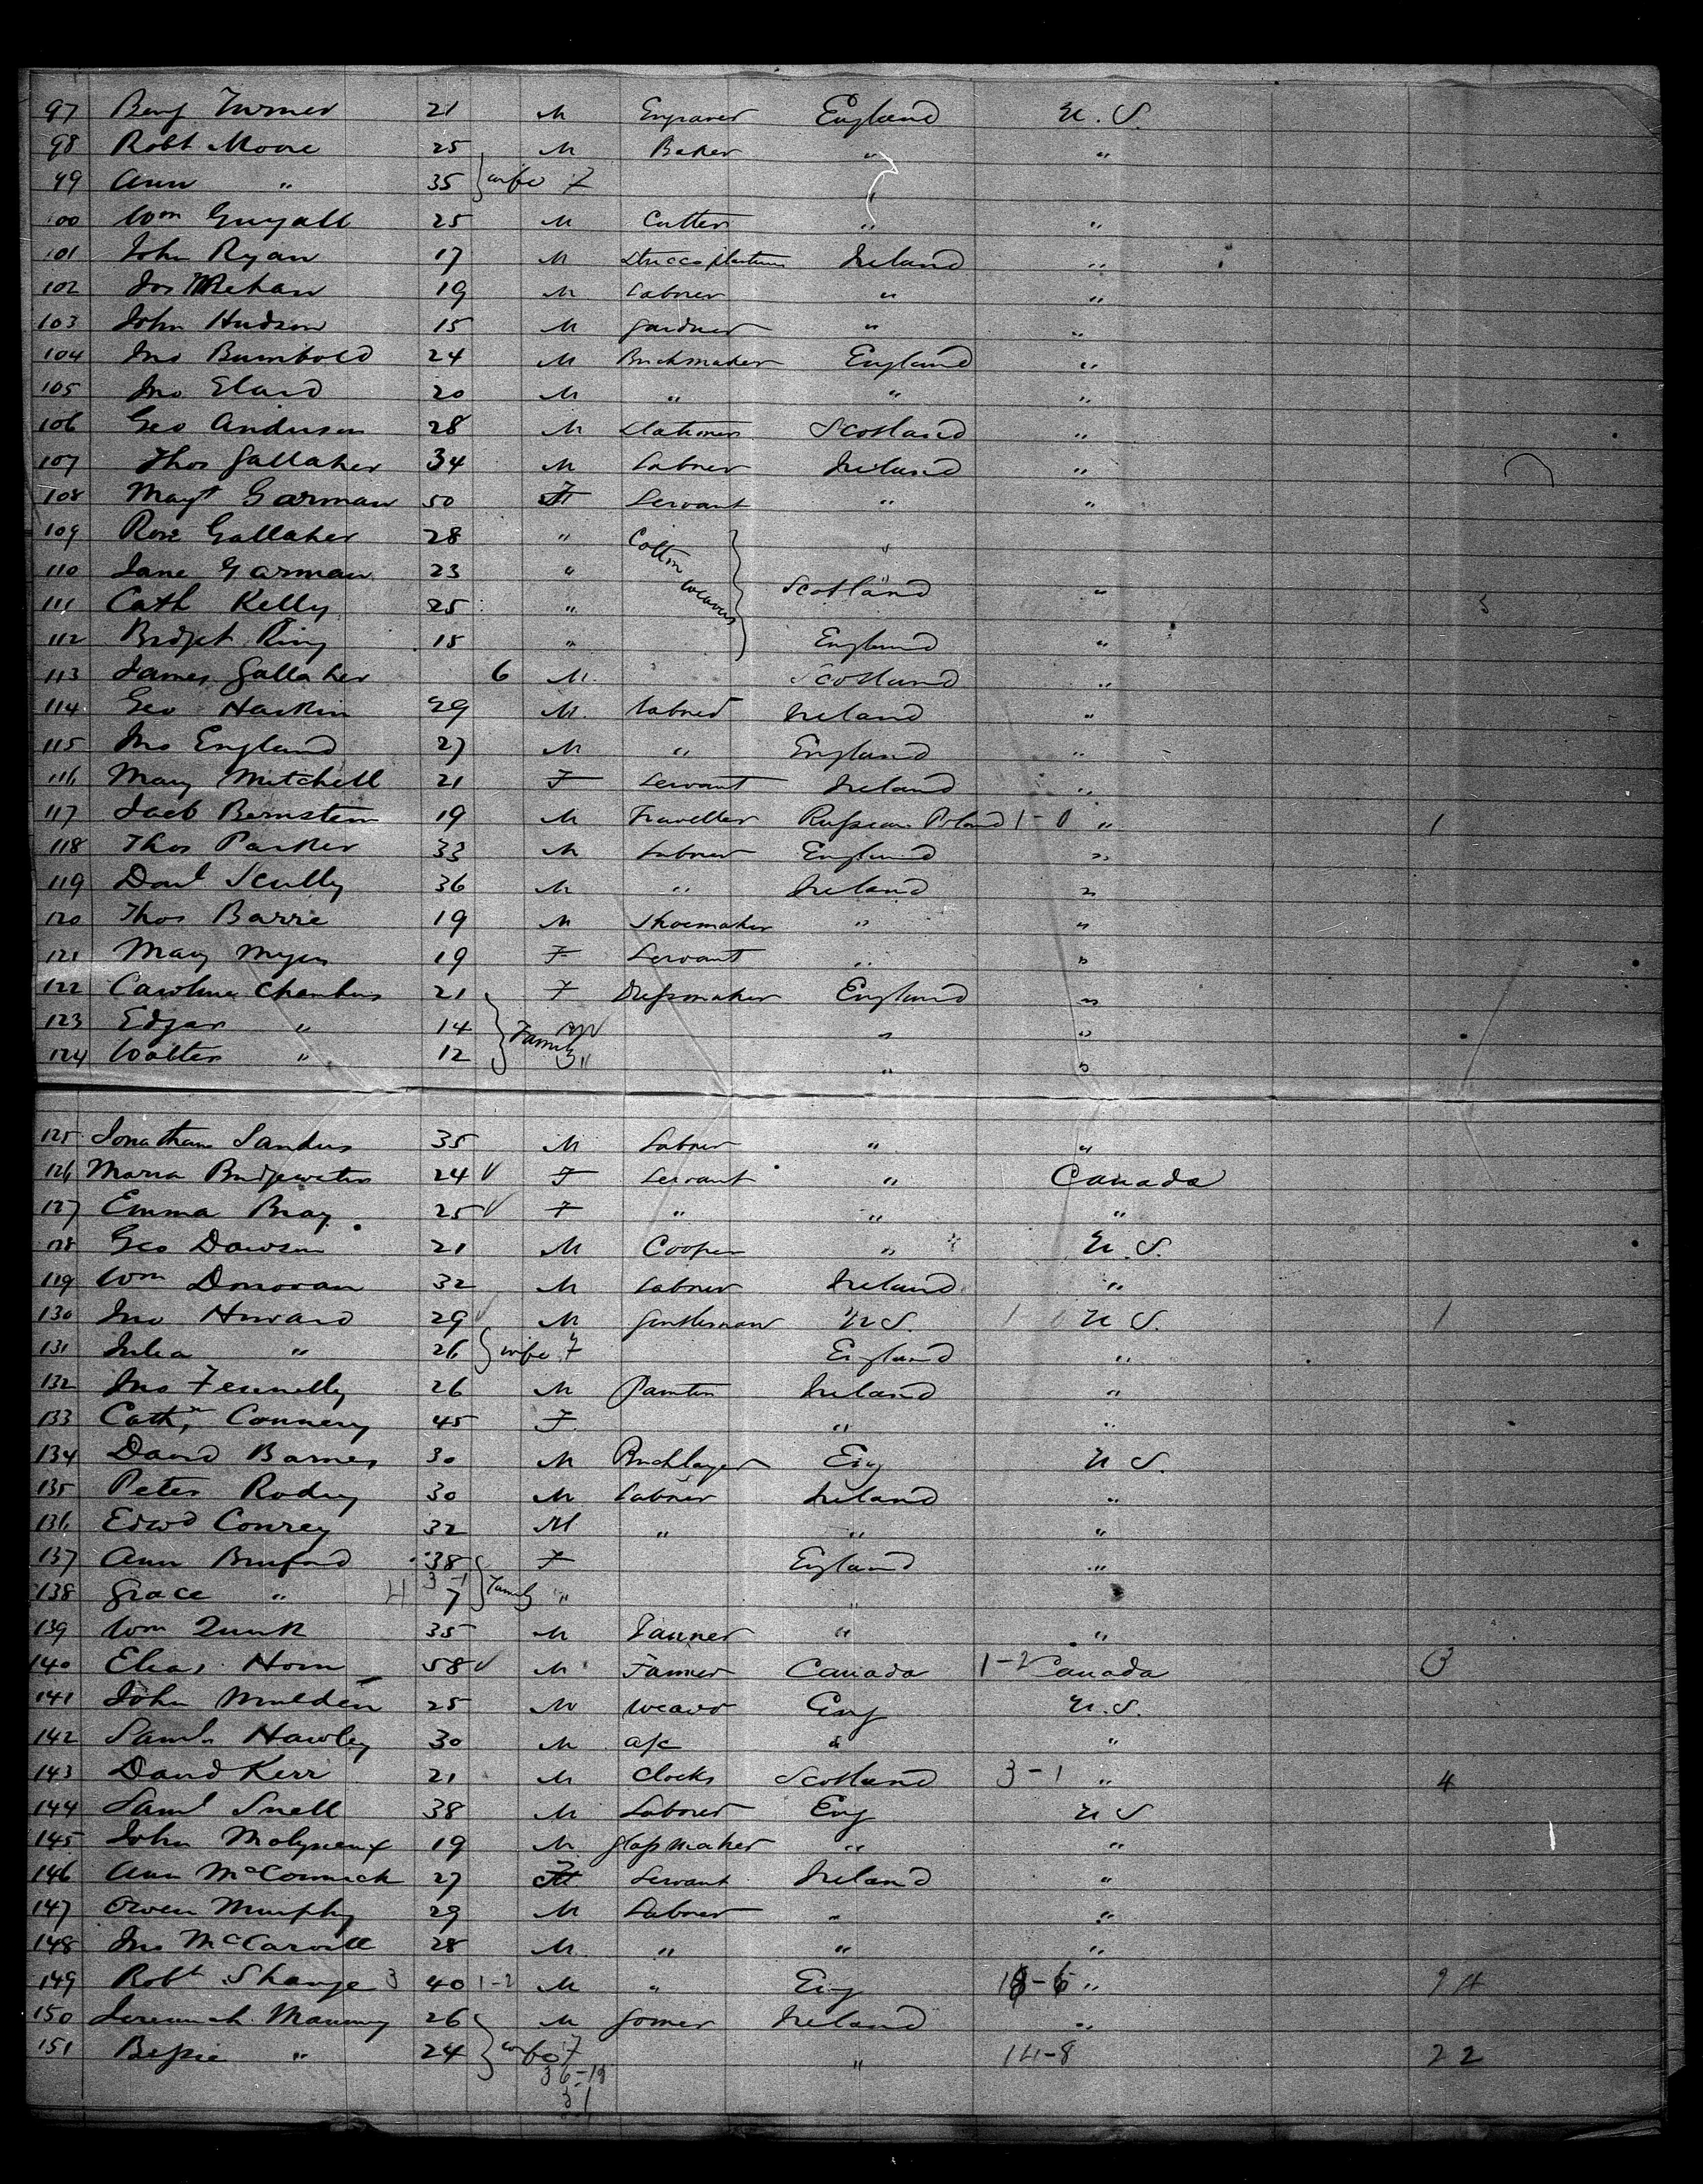 97 Benj Turner 21 M Engraver England U.S.
98 Robt Moore 25 M Baker " "
99 Ann " 35 } wife F "
100 Wm Guyatt 25 M Cutter " "
101 John Ryan 17 M Ireland "
102 Jos Mehan 19 M Labrer " "
103 John Hudson 15 M Gardner " "
104 Jno Bumbold 24 M Brickmaker England "
105 Jno Elard 20 M " " "
106 Geo Anderson 28 M Stationer Scotland "
107 Thos Gallaher 34 M Labrer Ireland "
108 Magt Garman 50 F Servant " "
109 Rose Gallaher 28 " Cotton weavers } "
110 Jane Garman 23 " " "
111 Cath Kelly 25 " Scotland
112 Bridget King 18 " England "
113 James Gallaher 6 M Scotland "
114 Geo Harkin 29 M Labrer Ireland "
115 Jno England 27 M " England "
116 Mary Mitchell 21 F Servant Ireland "
117 Jacb Bernstein 19 M Traveller Russian Poland 1-0 " 1
118 Thos Parker 33 M Labrer England "
119 Danl Scully 36 M " Ireland "
120 Thos Barrie 19 M Shoemaker " "
121 Mary Myers 19 F Servant " "
122 Caroline Chambers 21 F Dressmaker England "
123 Edgar " 14 } Family M " "
124 Walter " 12 " " "
125 Jonathan Sanders 35 M Labrer " "
126 Maria Bridgewater 24 F Servant " Canada
127 Emma Bray 25 F " " "
128 Geo Dawson 21 M Cooper " U.S.
119 Wm Donovan 32 M Labrer Ireland "
130 Jno Howard 29 M Gentleman U.S. 1 0 U S. 1
131 Julia " 26 } wife F England "
132 Jno Fennelly 26 M Painter Ireland "
133 Cathn Connery 45 F " "
134 David Barnes 30 M Bricklayer Eng U S.
135 Peter Rodny 30 M Labrer Ireland "
136 Edwd Conrey 32 M " " "
137 Ann Bruford 38 F England "
138 Grace " 7 } Family " " "
139 Wm Quirk 35 M Tanner " "
140 Elias Horn 58 M Farmer Canada 1-2 Canada 3
141 John Mulden 25 M Weaver Eng U.S.
142 Saml Hawley 30 M " "
143 David Kerr 21 M Clocks Scotland 3-1 " 4
144 Saml Snell 38 M Laborer Eng U S
145 John Molyneux 19 M Glassmaker " "
146 Ann McCormack 27 F Servant Ireland "
147 Owen Murphy 29 M Labrer " "
148 Jno McCarvill 28 M " " "
149 Robt Sharpe 3 40 1-2 M " Eng "
150 Jeremiah Manning 26 M Ireland "
151 Bessie " 24 } wife F " 14-8 22
36-18
31